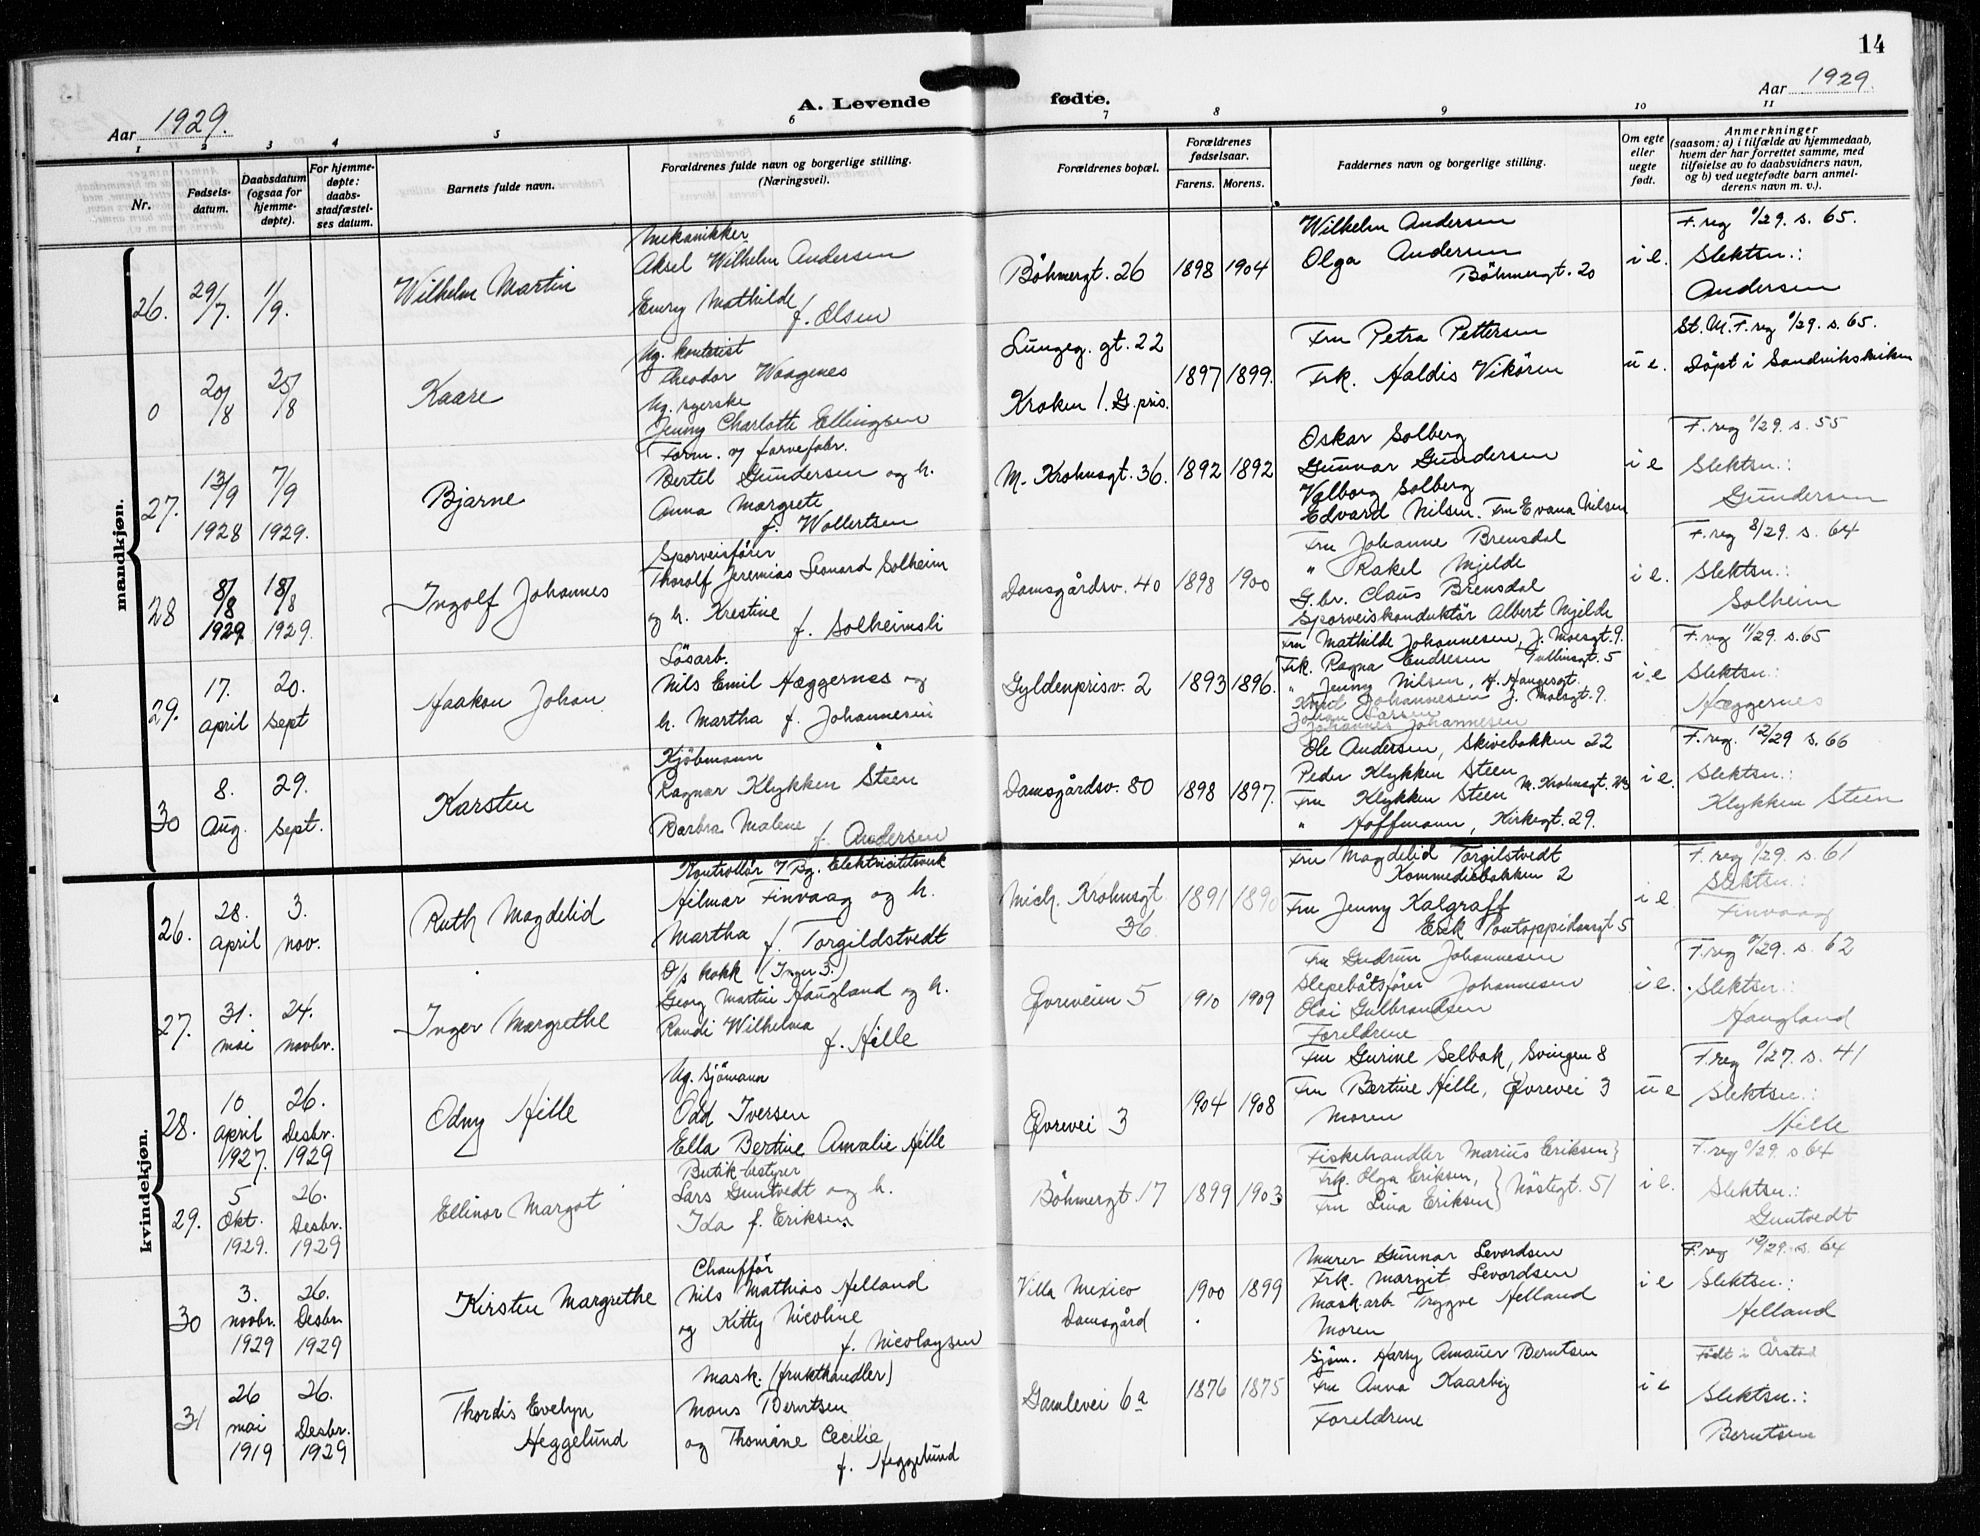 14
Aar 1929.
A. Levende fødte.
Aar 1929.
1 2 3 4 5 6 7 8 9 10 11
Nr.
Fødsels-
datum.
Daabsdatum
(ogsaa for
hjemme-
døpte).
For hjemme-
døpte:
daabs-
stadfæstel-
ses datum.
Barnets fulde navn.
Forældrenes fulde navn og borgerlige stilling.
(Næringsvei).
Forældrenes bopæl.
Forældrenes
fødselsaar.
Farens. Morens.
Faddernes navn og borgerlige stilling.
Om egte
eller
uegte
født.
Anmerkninger
(saasom: a) i tilfælde av hjemmedaab,
hvem der har forrettet samme, med
tilføielse av to daabsvidners navn,
og b) ved uegtefødte barn anmel-
derens navn m. v.).
mandkjøn.
26. 29/7. 1/9. Wilhelm Martin
Mekanikker
Aksel Wilhelm Andersen
Emry Mathilde
f. Olsen
Böhmergt. 26 1898 1904
Wilhelm Andersen
Olga Andersen
Böhmergt. 20
i e.
F. reg 9/29. s. 65.
Slektsn.:
Andersen
0 20/8 25/8 Kaare
Ug. kontorist
Theodor Waagenes
Ug. syerske
Jenny Charlotte Ellingsen
Lungeg. gt. 22
Kroken 1. G. pris.
1897 1899.
Fru Petra Pettersen
Frk. Haldis Vikören
u e.
St. M. F. reg 9/29. s. 65.
Döpt i Sandvikskirken
27. 13/9 1928 7/9 1929. Bjarne
Form. v/ farvefabr.
Bertel Gundersen og h.
Anna Margrete
f. Wollertsen
M. Krohnsgt. 36. 1892 1892
Oskar Solberg
Gunnar Gundersen
Valborg Solberg
Edvard Nilsen. Fru Evana Nilsen
i e
F. reg 9/29. s. 55
Slektsn.:
Gundersen
28 8/8 1929. 18/8 1929. Ingolf Johannes
Sporveisförer
Thorolf Jeremias Leonard Solheim
og h. Krestine
f. Solheimsli
Damsgårdsv. 40 1898 1900
Fru Johanne Brensdal
" Rakel Mjelde
G.br. Claus Brensdal
Sporveiskonduktör Albert Mjelde
i e.
F. reg 8/29. s. 64
Slektsn.:
Solheim
29. 17. april 20. sept Haakon Johan
Lösarb.
Nils Emil Hæggernes og
h. Martha f. Johannesen
Gyldenprisv. 2 1893 1896.
Fru Mathilde Johannesen, J. Moesgt. 9.
Frk. Ragna Endresen Tullinsgt. 5
" Jenny Nilsen, H. Haugesgt.
Knut Johannesen J. Moesgt. 9.
Johan Larsen
Johannes Johannesen
i e
F. reg 11/29. s. 65
Slektsn.:
Hæggernes
30 8. Aug. 29. sept. Karsten
Kjöbmann
Ragnar Klykken Steen
Barbra Malene
f. Andersen
Damsgårdsv. 80 1898 1897.
Ole Andersen, Skivebakken 22
Peder Klykken Steen
Fru Klykken Steen M. Krohnsgt.
" Hoffmann, Kirkegt. 29.
i e.
F. reg. 12/29 s. 66
Slektsn.:
Klykken Steen
kvindekjøn.
26. 28. april 3. nov. Ruth Magdelid
Kontrollör v/ Bg. Elektricitetsverk
Hilmar Finvaag og h.
Martha f. Torgildstvedt
Mich. Krohnsgt
36
1891 1890
Fru Magdelid Torgilstvedt
Kommediebakken 2
Fru Jenny Kalgraff
Erik Pontoppidansgt 5
i e.
F. reg 9/29. s. 61
Slektsn.:
Finvaag
27. 31. mai 24. novbr. Inger Margrethe
D/s kokk (Inger 3.)
Georg Martin Haugland og h.
Randi Wilhelma
f. Hille
Övreveien 5 1910 1909
Fru Gudrun Johannesen
Slepebåtsförer Johannesen
Olai Gulbrandsen
Foreldrene
i e.
F. reg 9/29. s. 62
Slektsn.:
Haugland
28. 10 april 1927. 26. Desbr. 1929 Odny Hille
Ug. sjömann
Odd Iversen
Ella Bertine Amalie Hille
Övrevei 3 1904 1908
Fru Gurine Selbak, Svingen 8
Fru Bertine Hille, Övrevei 3
Moren
u e
F. reg 9/27. s. 41
Slektsn.:
Hille
29. 5 Okt. 1929. 26. Desbr. 1929 Ellinor Margot
Butik-bestyrer
Lars Gumtvedt og h.
Ida f. Eriksen
Böhmergt. 17 1899 1903
Fiskehandler Marius Eriksen }
Frk. Olga Eriksen,
Fru Lina Eriksen } Nöstegt. 51
i e.
F. reg 9/29. s 64
Slektsn.:
Gumtvedt
30 3. novbr. 1929 26. Desbr 1929 Kirsten Margrethe
Chauffør
Nils Mathias Helland
og Kitty Nicoline
f. Nicolaysen
Villa Mexico
Damsgård
1900 1899
Murer Gunnar Sevordsen
Frk. Margit Sevordsen
Mask.arb. Tryggve Helland
Moren
i e
F. reg 10/29. s. 64
Slektsn.:
Helland
31 26 mai 1919 26. Desbr. 1929 Thordis Evelyn
Heggelund
Mask. (frukthandler)
Mons Berntsen
og Thomine Cecilie
f. Heggelund
Gamlevei 6a 1876 1875
Sjöm. Harry Amauer Berntsen
Fru Anna Kaarbig
Foreldrene
i e
Födt i Årstad
Slektsn.:
Berntsen